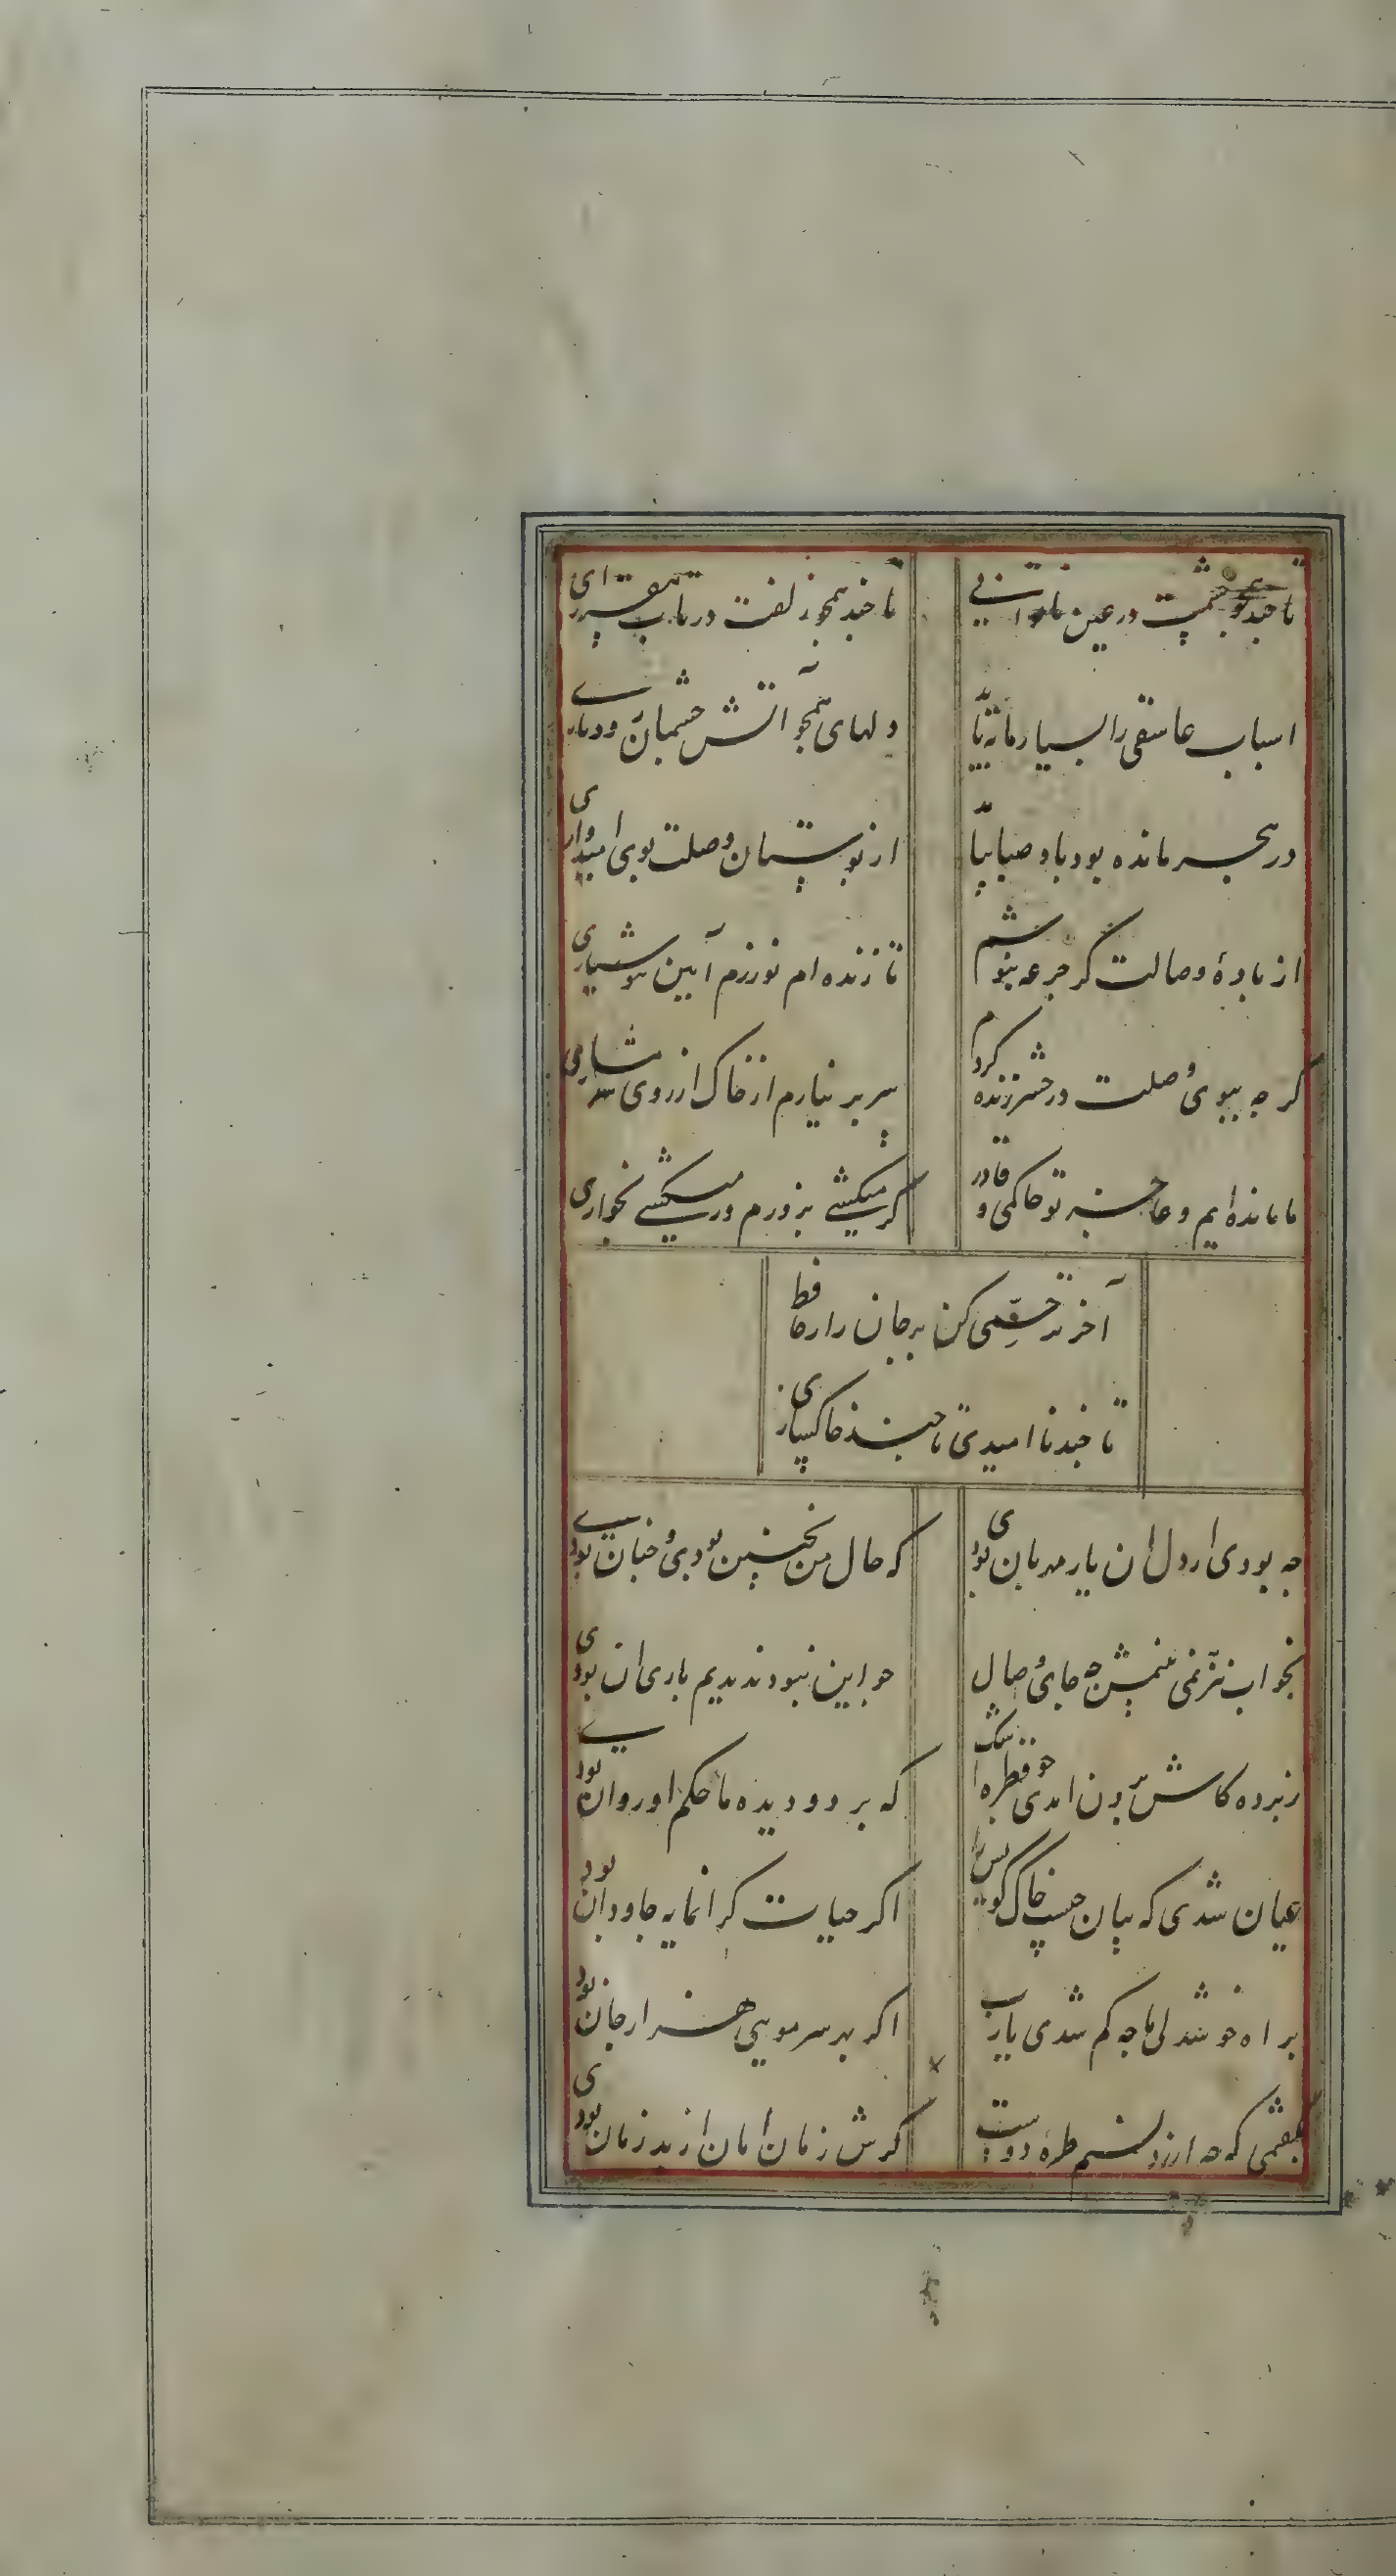 تا چند همچو چشمت در عین ناتوانی
تا چند همچو زلفت در تاب بیقراری
اسباب عاشقی را بسیار مایه باید
دلهای همچو آتش چشمان رودباری
در هجر مانده بودم باد صبا بیامد
از بوستان وصلت بوی امیدواری
از بادهٔ وصالت گر جرعه بنوشم
تا زنده ام نورزم آیین هوشیاری
گرچه ببوی وصلت در حشر زنده گردم
سر بر نیارم از خاک از روی شرمساری
ما مانده ایم و عاجز تو حاکمی و قادر
گر میکشی بزورم ور میکشی بخواری
آخر ترحمی کن بر جان زار حافظ
تا چند نا امیدی تا چند خاکساری
چه بودی ار دل ان یار مهربان بودی
که حال من نچنین بودی و چنان بودی
بخواب نیز نمی بینمش چه جای وصال
چو این نبود ندیدیم باری ان بودی
ز پرده کاش برون امدی چو قطره اشک
که بر دو دیده ما حکم او روان بودی
عیان شدی که بهان چیست خاک کویش را
اکر حیات کرانمایه جاودان بودی
براه خوشدلی ما چه کم شدی یارب
اکر بهر سر مویی هزار جان بودی
بگفتمی که چه ارزد نسیم طره دوست
کرش زمان امان از بد زمان بودی